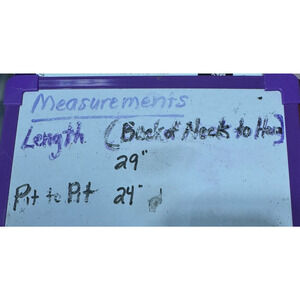 Measurements
Length (Back of Neck to Hem)
29"
Pit to Pit 24"